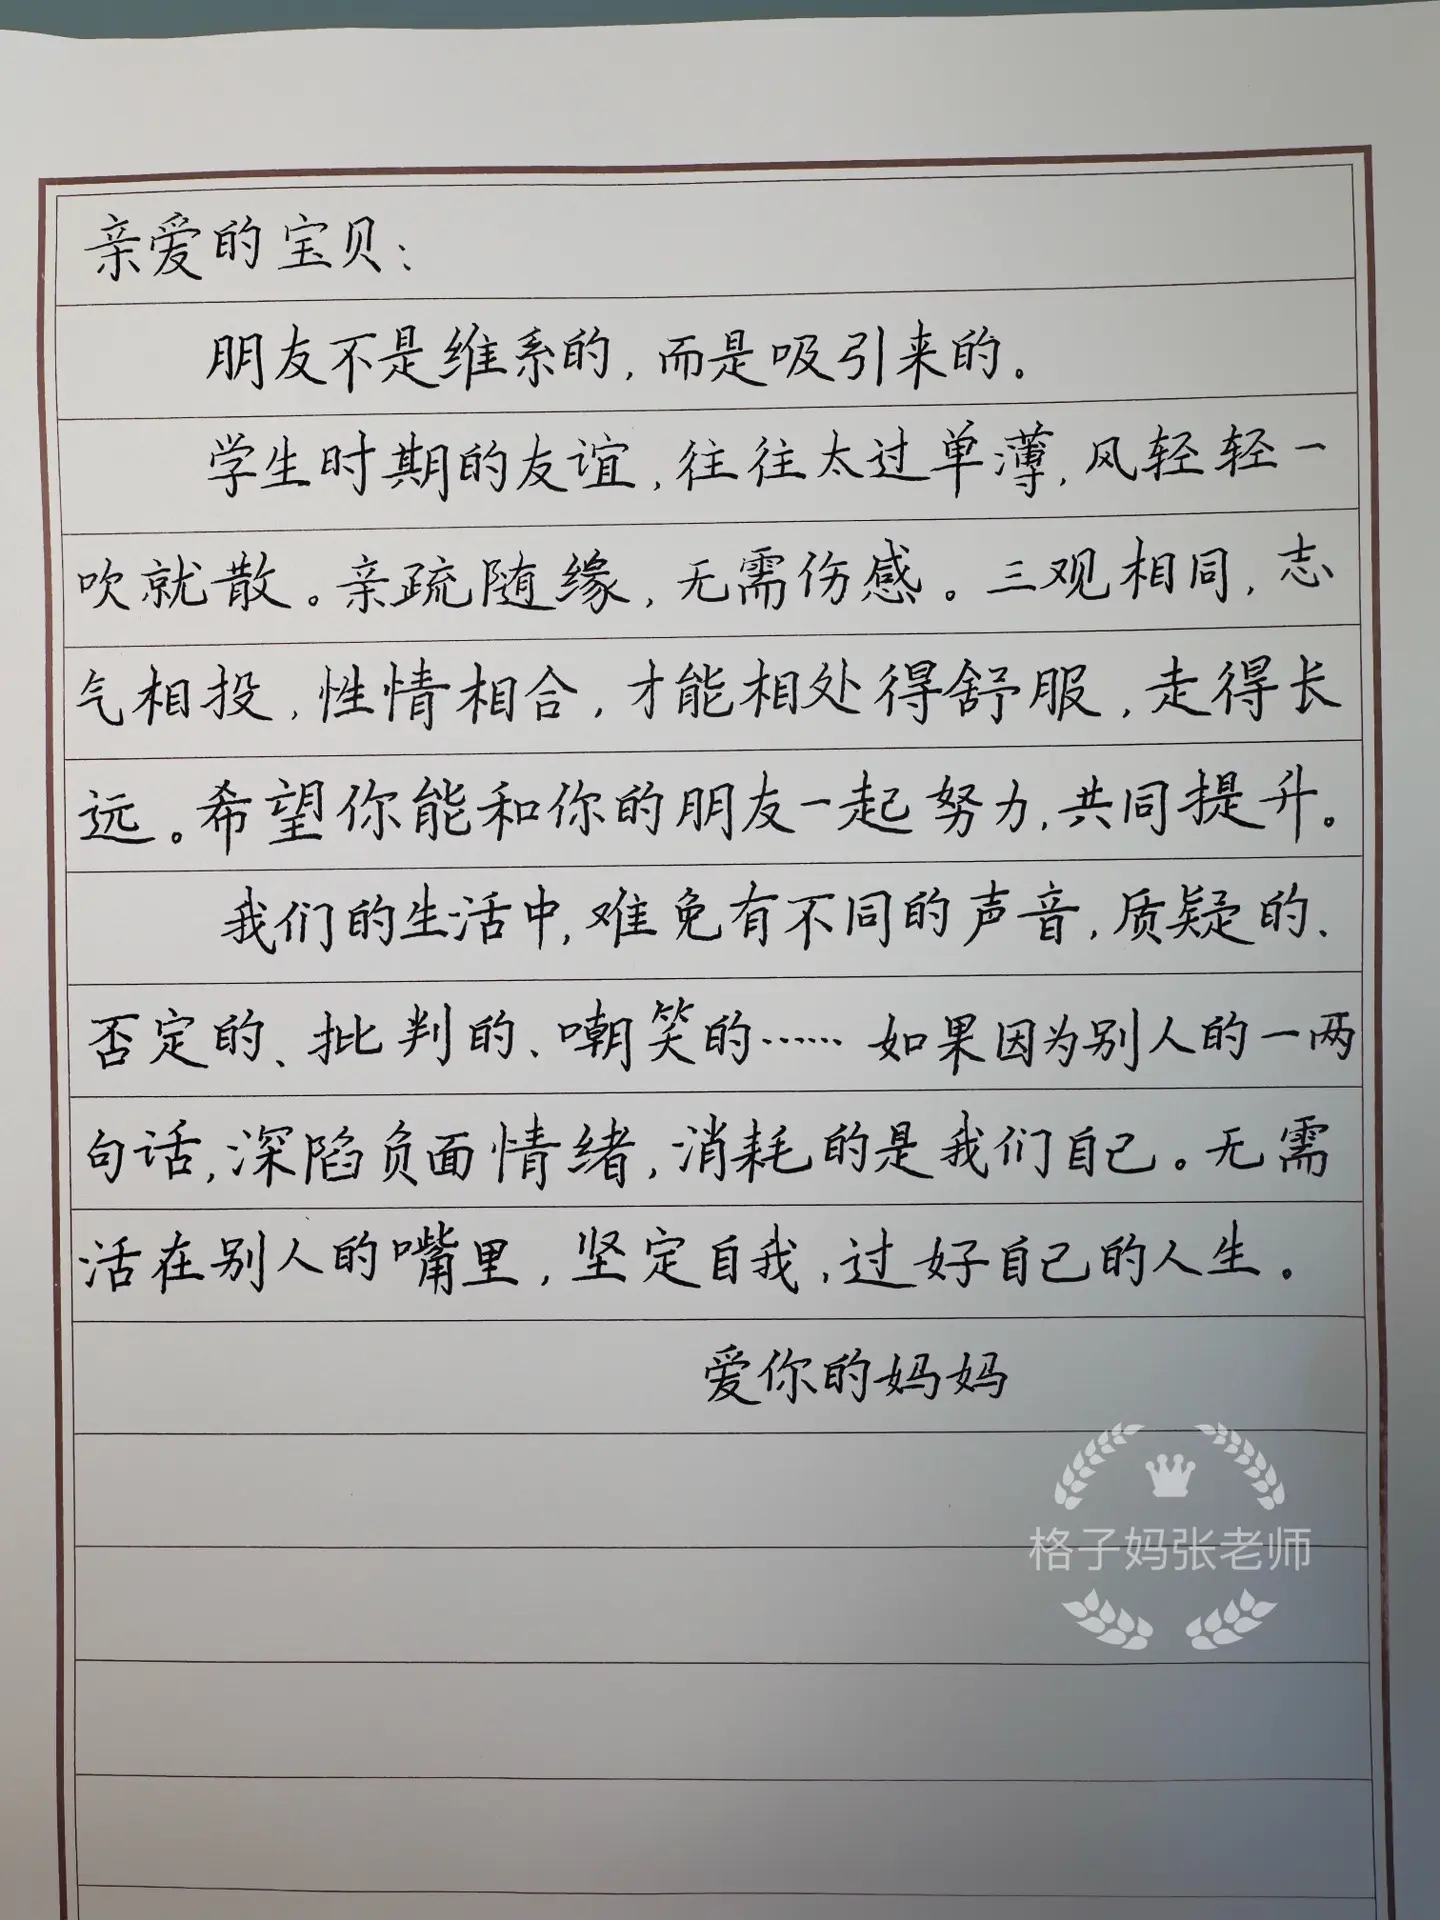 亲爱的宝贝：
朋友不是维系的，而是吸引来的。
学生时期的友谊，往往太过单薄，风轻轻一
吹就散。亲疏随缘，无需伤感。三观相同，志
气相投，性情相合，才能相处得舒服，走得长
远。希望你能和你的朋友一起努力，共同提升。
我们的生活中，难免有不同的声音，质疑的、
否定的、批判的、嘲笑的……如果因为别人的一两
句话，深陷负面情绪，消耗的是我们自己。无需
活在别人的嘴里，坚定自我，过好自己的人生。
爱你的妈妈
格子妈张老师